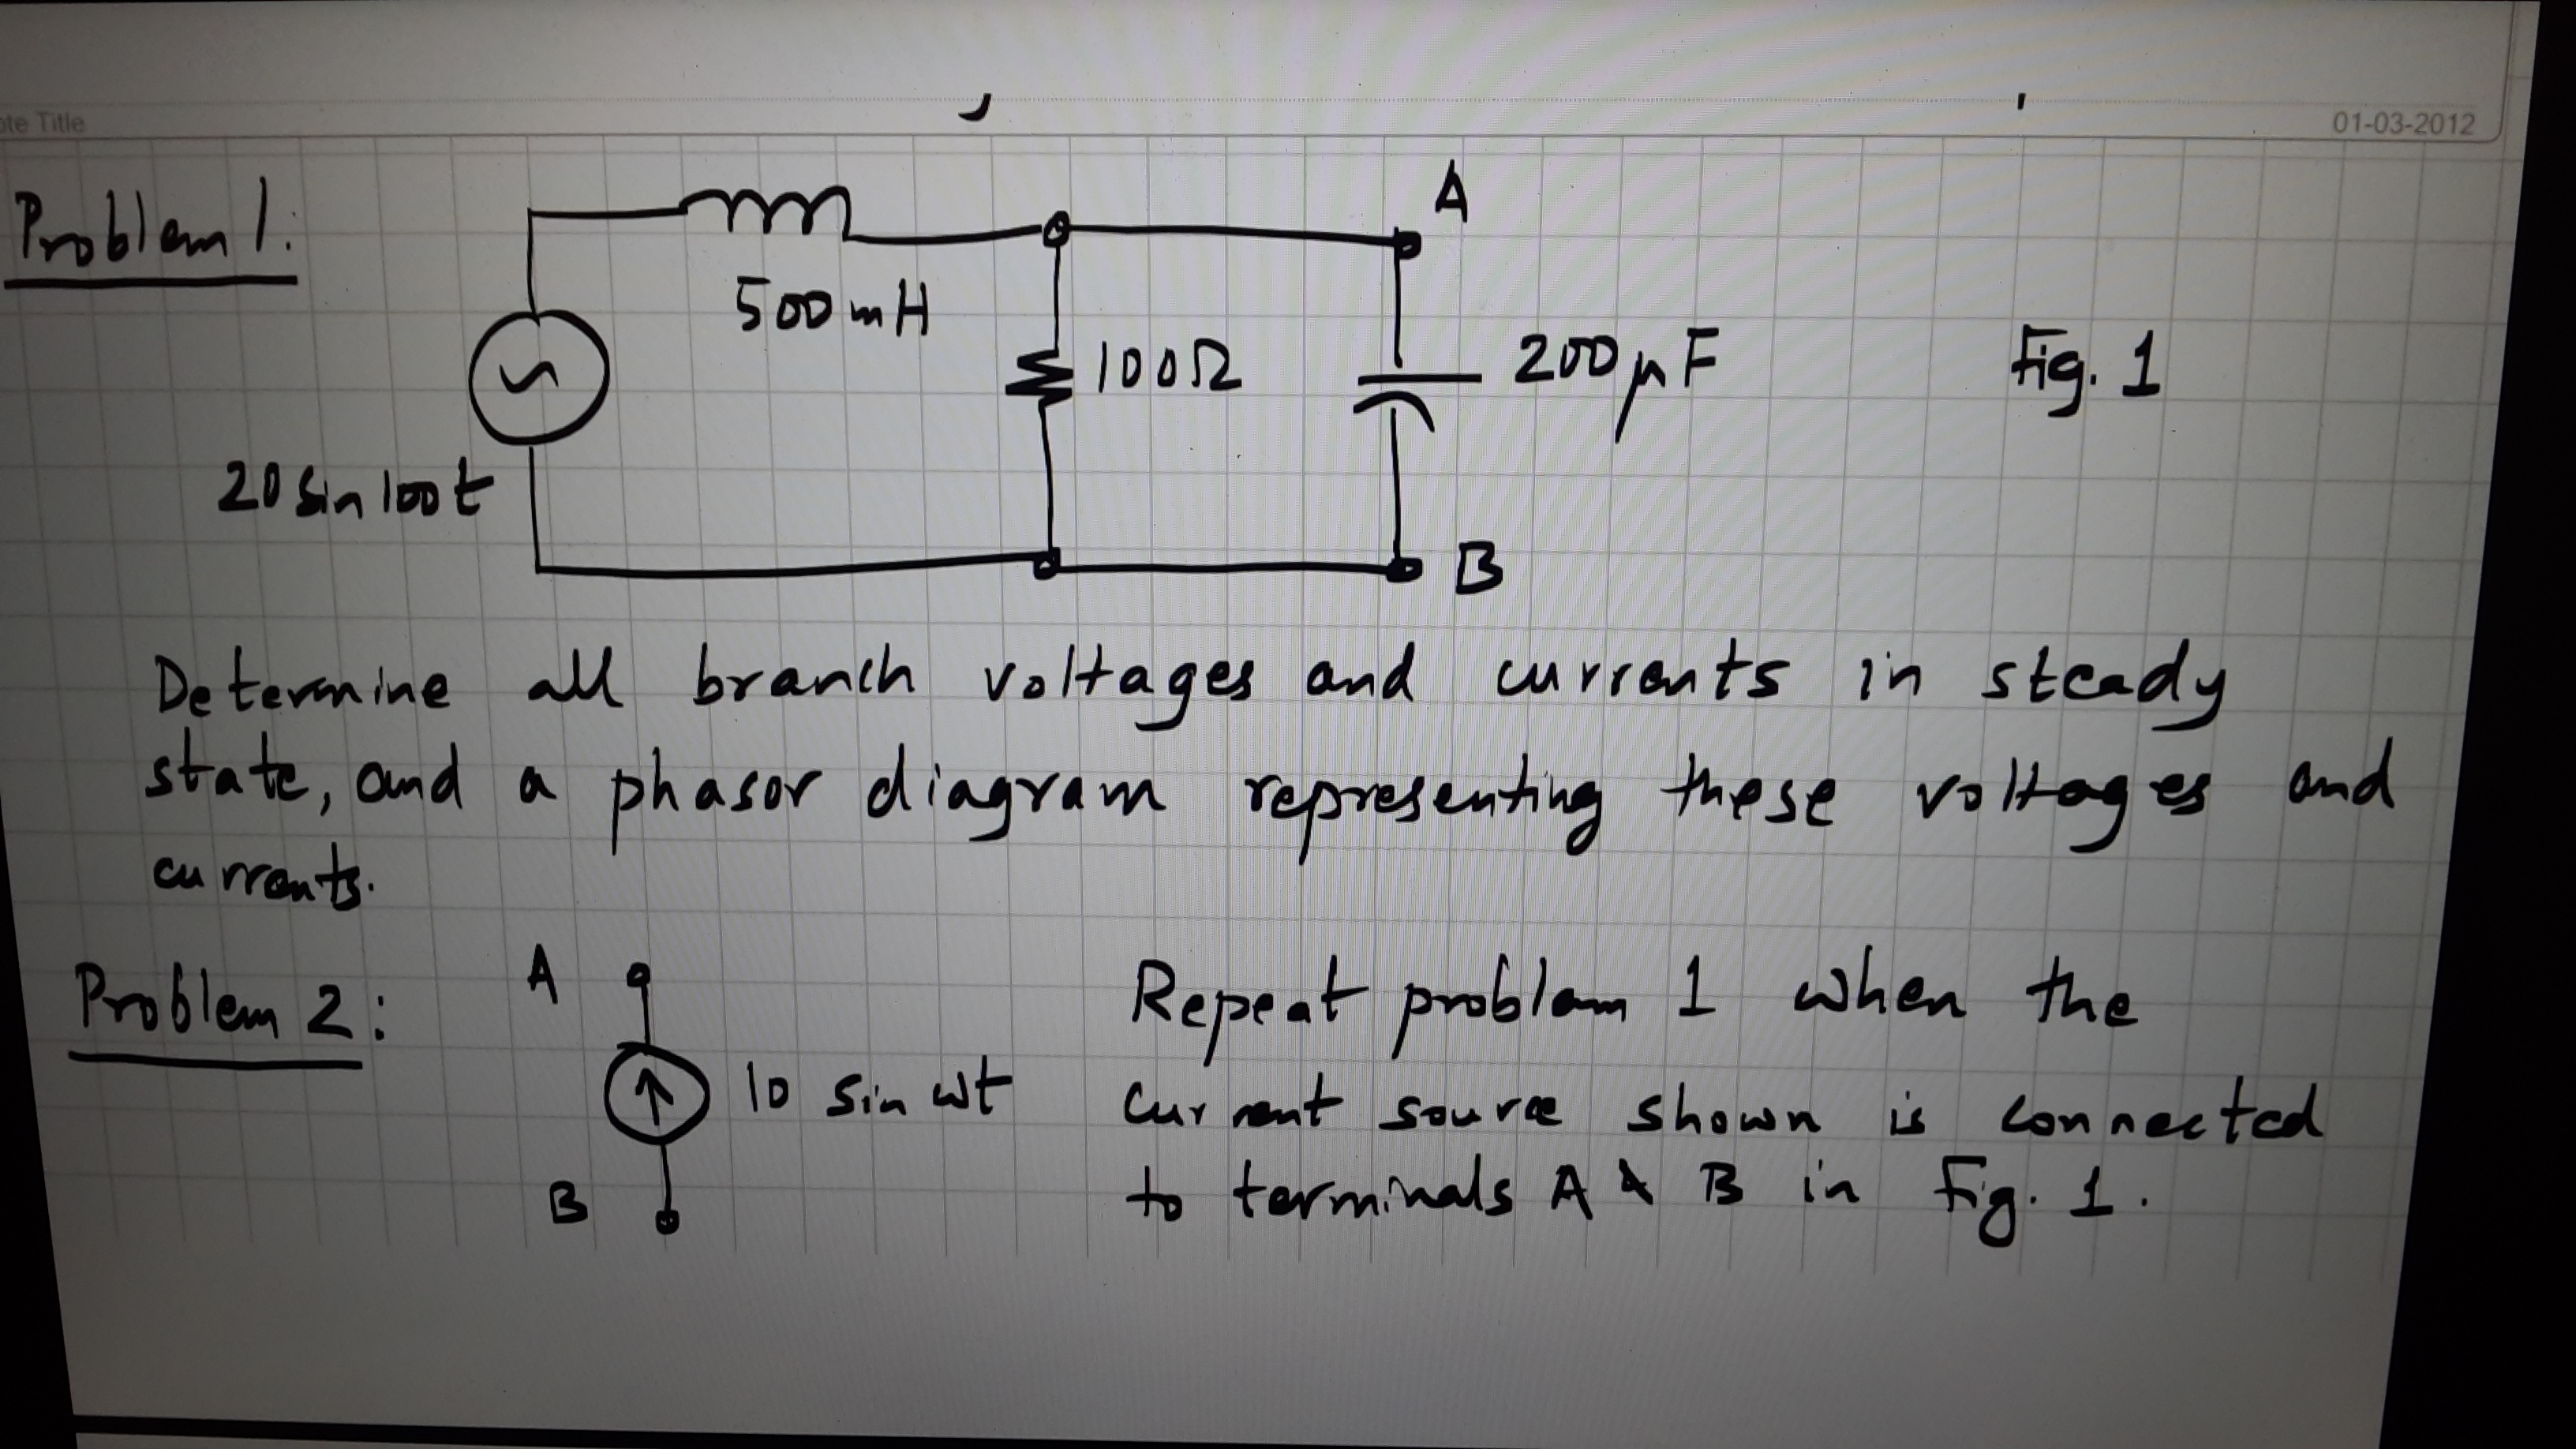 ote Title
01-03-2012
Problem 1:
A
500mH
100Ω
200μF
Fig. 1
20 sin 100t
B
Determine all branch voltages and currents in steady
state, and a phasor diagram representing these voltages and
currents.
Problem 2:
A
10 sin ωt
B
Repeat problem 1 when the
current source shown is connected
to terminals A & B in Fig. 1.